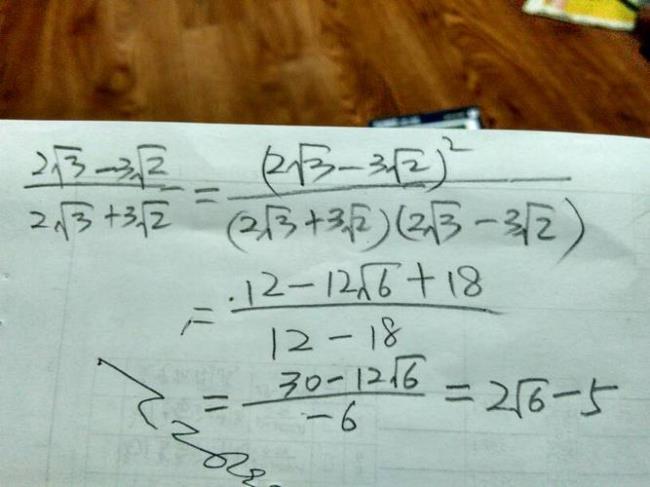 (2√3-3√2)/(2√3+3√2) = (2√3-3√2)²/((2√3+3√2)(2√3-3√2))
= (12-12√6+18)/(12-18)
= (30-12√6)/(-6) = 2√6-5